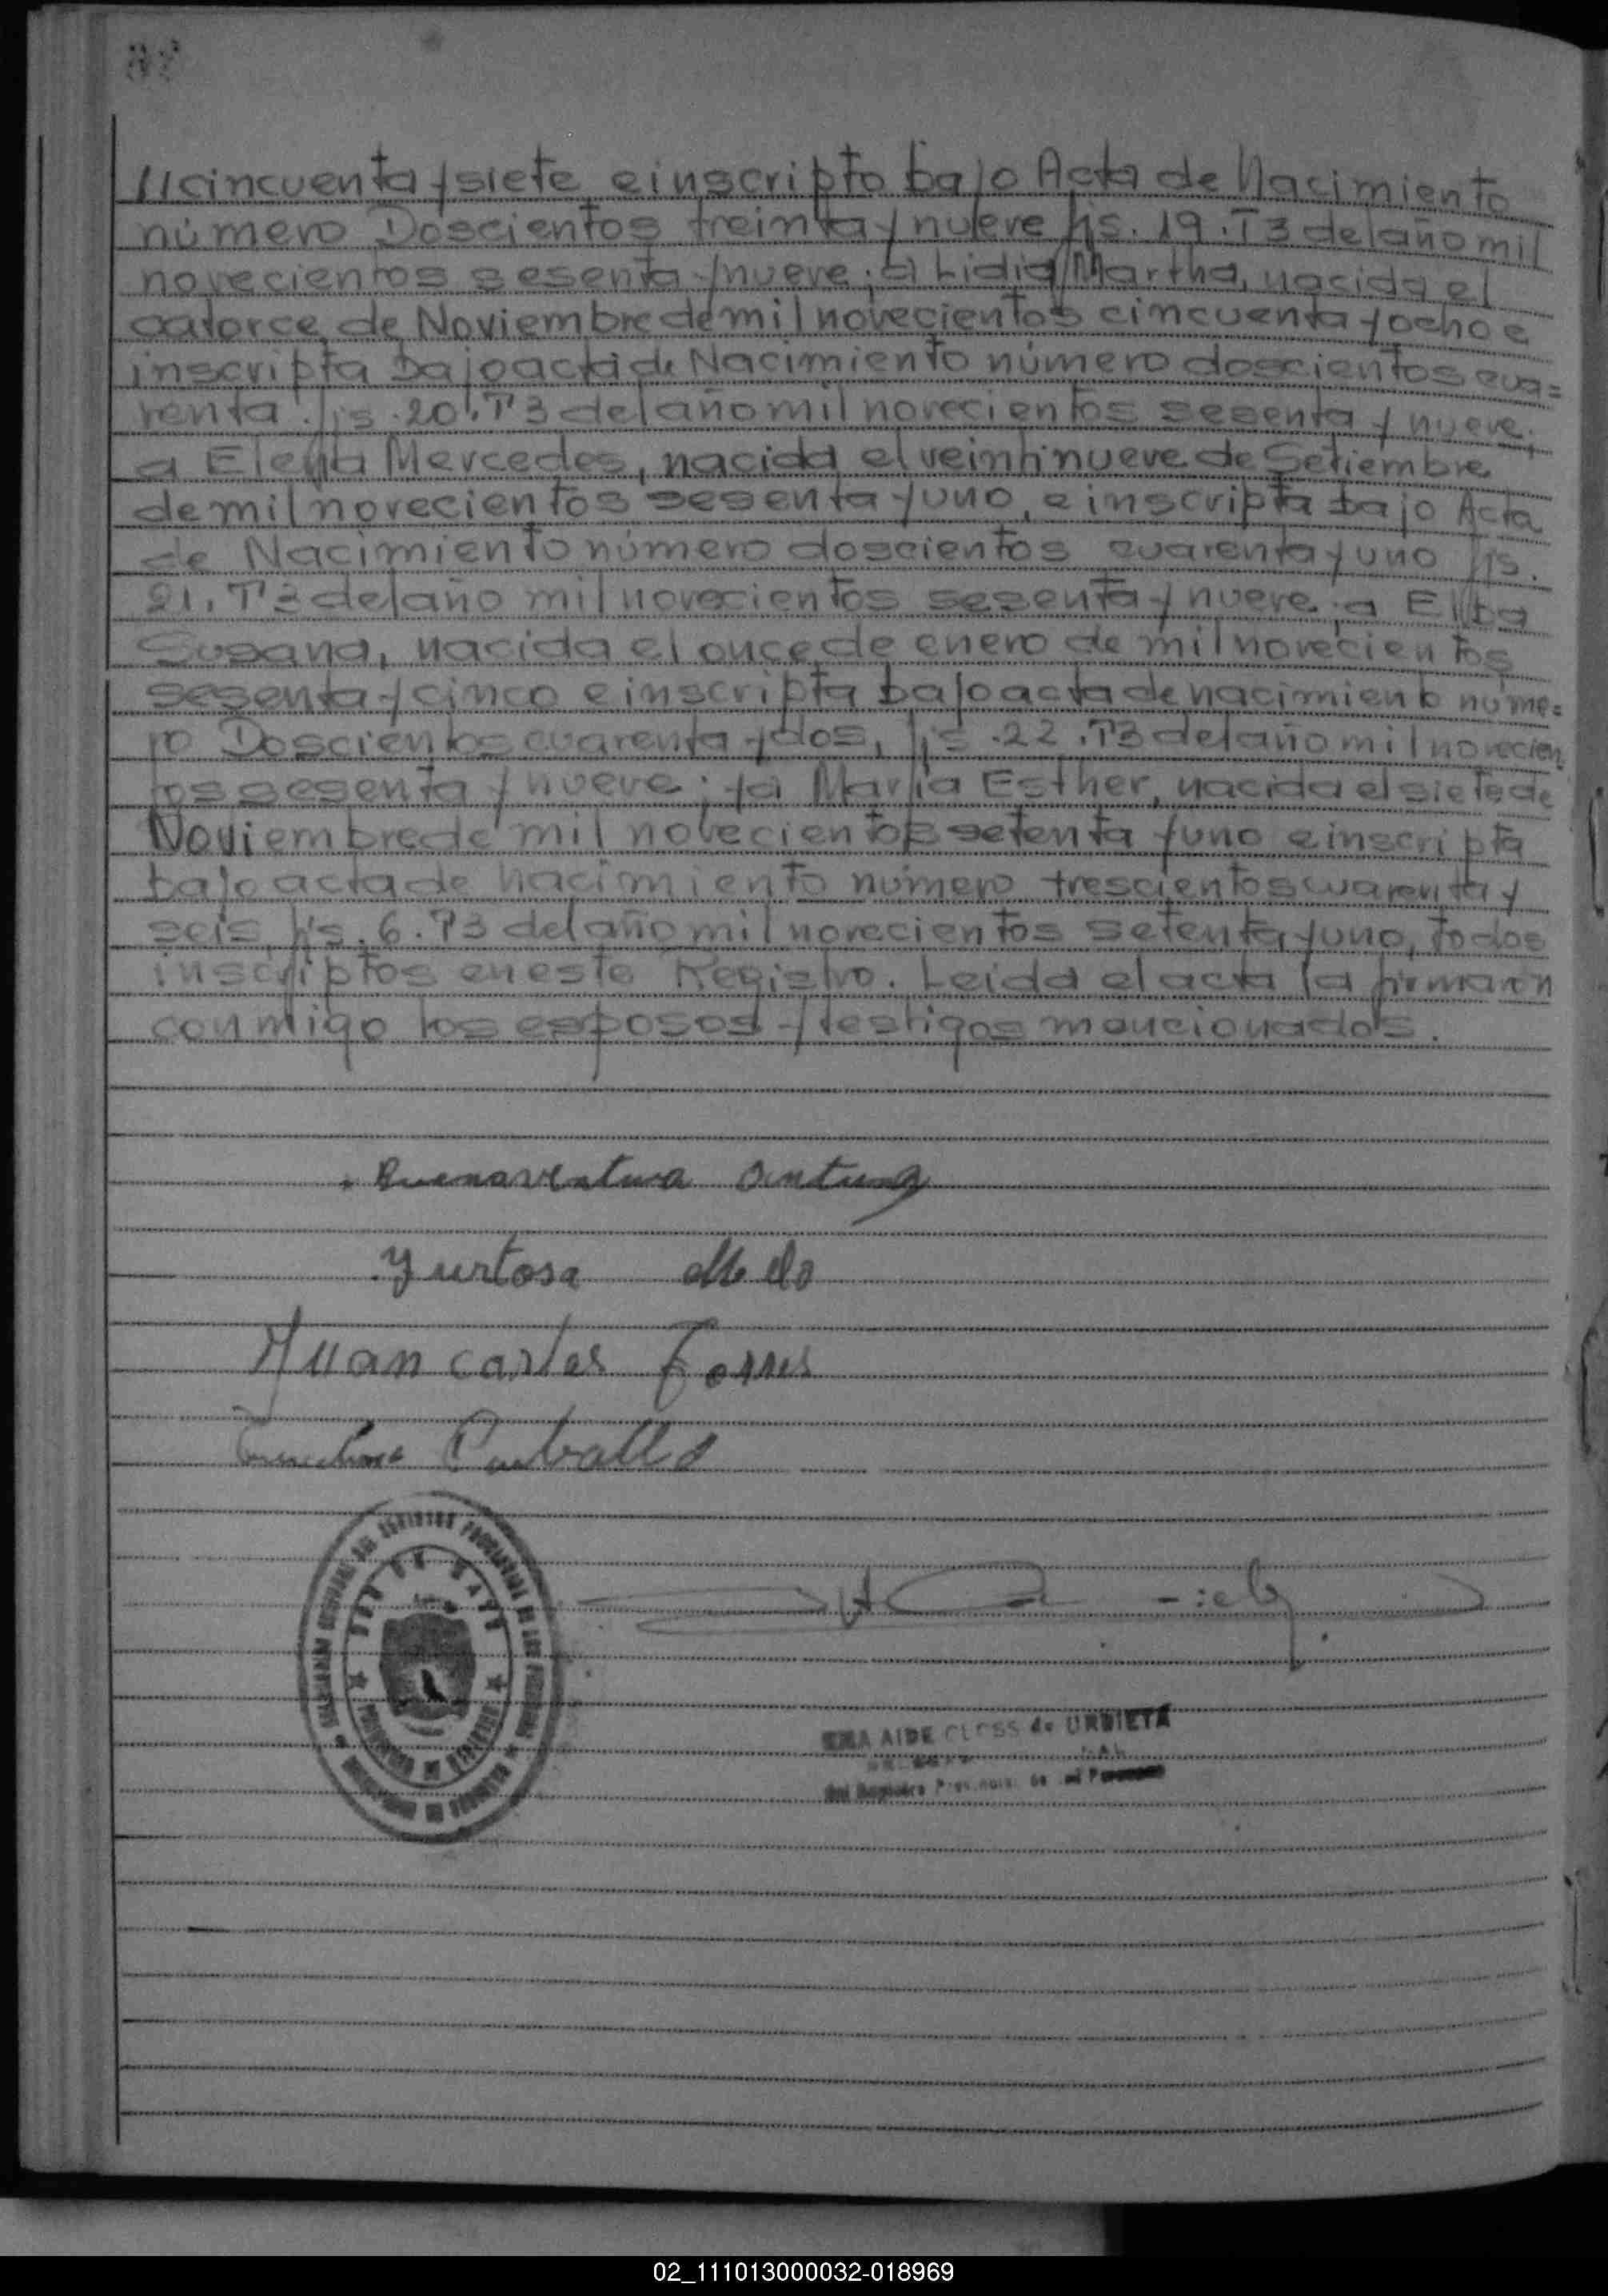 //cincuenta y siete, e inscripto bajo Acta de Nacimiento
número Doscientos treinta y nueve fjs. 19. Tº3 del año mil
novecientos sesenta y nueve; a Lidia Martha, nacida el
catorce de Noviembre de mil novecientos cincuenta y ocho e
inscripta bajo acta de Nacimiento número doscientos cua=
renta. fjs. 20. Tº3 del año mil novecientos sesenta y nueve;
a Elena Mercedes, nacida el veintinueve de Setiembre
de mil novecientos sesenta y uno, e inscripta bajo Acta
de Nacimiento número doscientos cuarenta y uno fjs.
21. Tº3 del año mil novecientos sesenta y nueve; a Elba
Susana, nacida el once de enero de mil novecientos
sesenta y cinco e inscripta bajo acta de nacimiento núme=
ro Doscientos cuarenta y dos, fjs. 22. Tº3 del año mil novecien
tos sesenta y nueve; y a María Esther, nacida el siete de
Noviembre de mil novecientos setenta y uno e inscripta
bajo acta de nacimiento número trescientos cuarenta y
seis, fjs. 6. Tº3 del año mil novecientos setenta y uno, todos
inscriptos en este Registro. Leida el acta la firmaron
conmigo los esposos y testigos mencionados.
Buenaventura Antun
Yurtosa Melo
Juan carlos Torres
Carballo
AIDE CLOSS de URBIETA
del Registro Provincial de las Personas
02_111013000032-018969